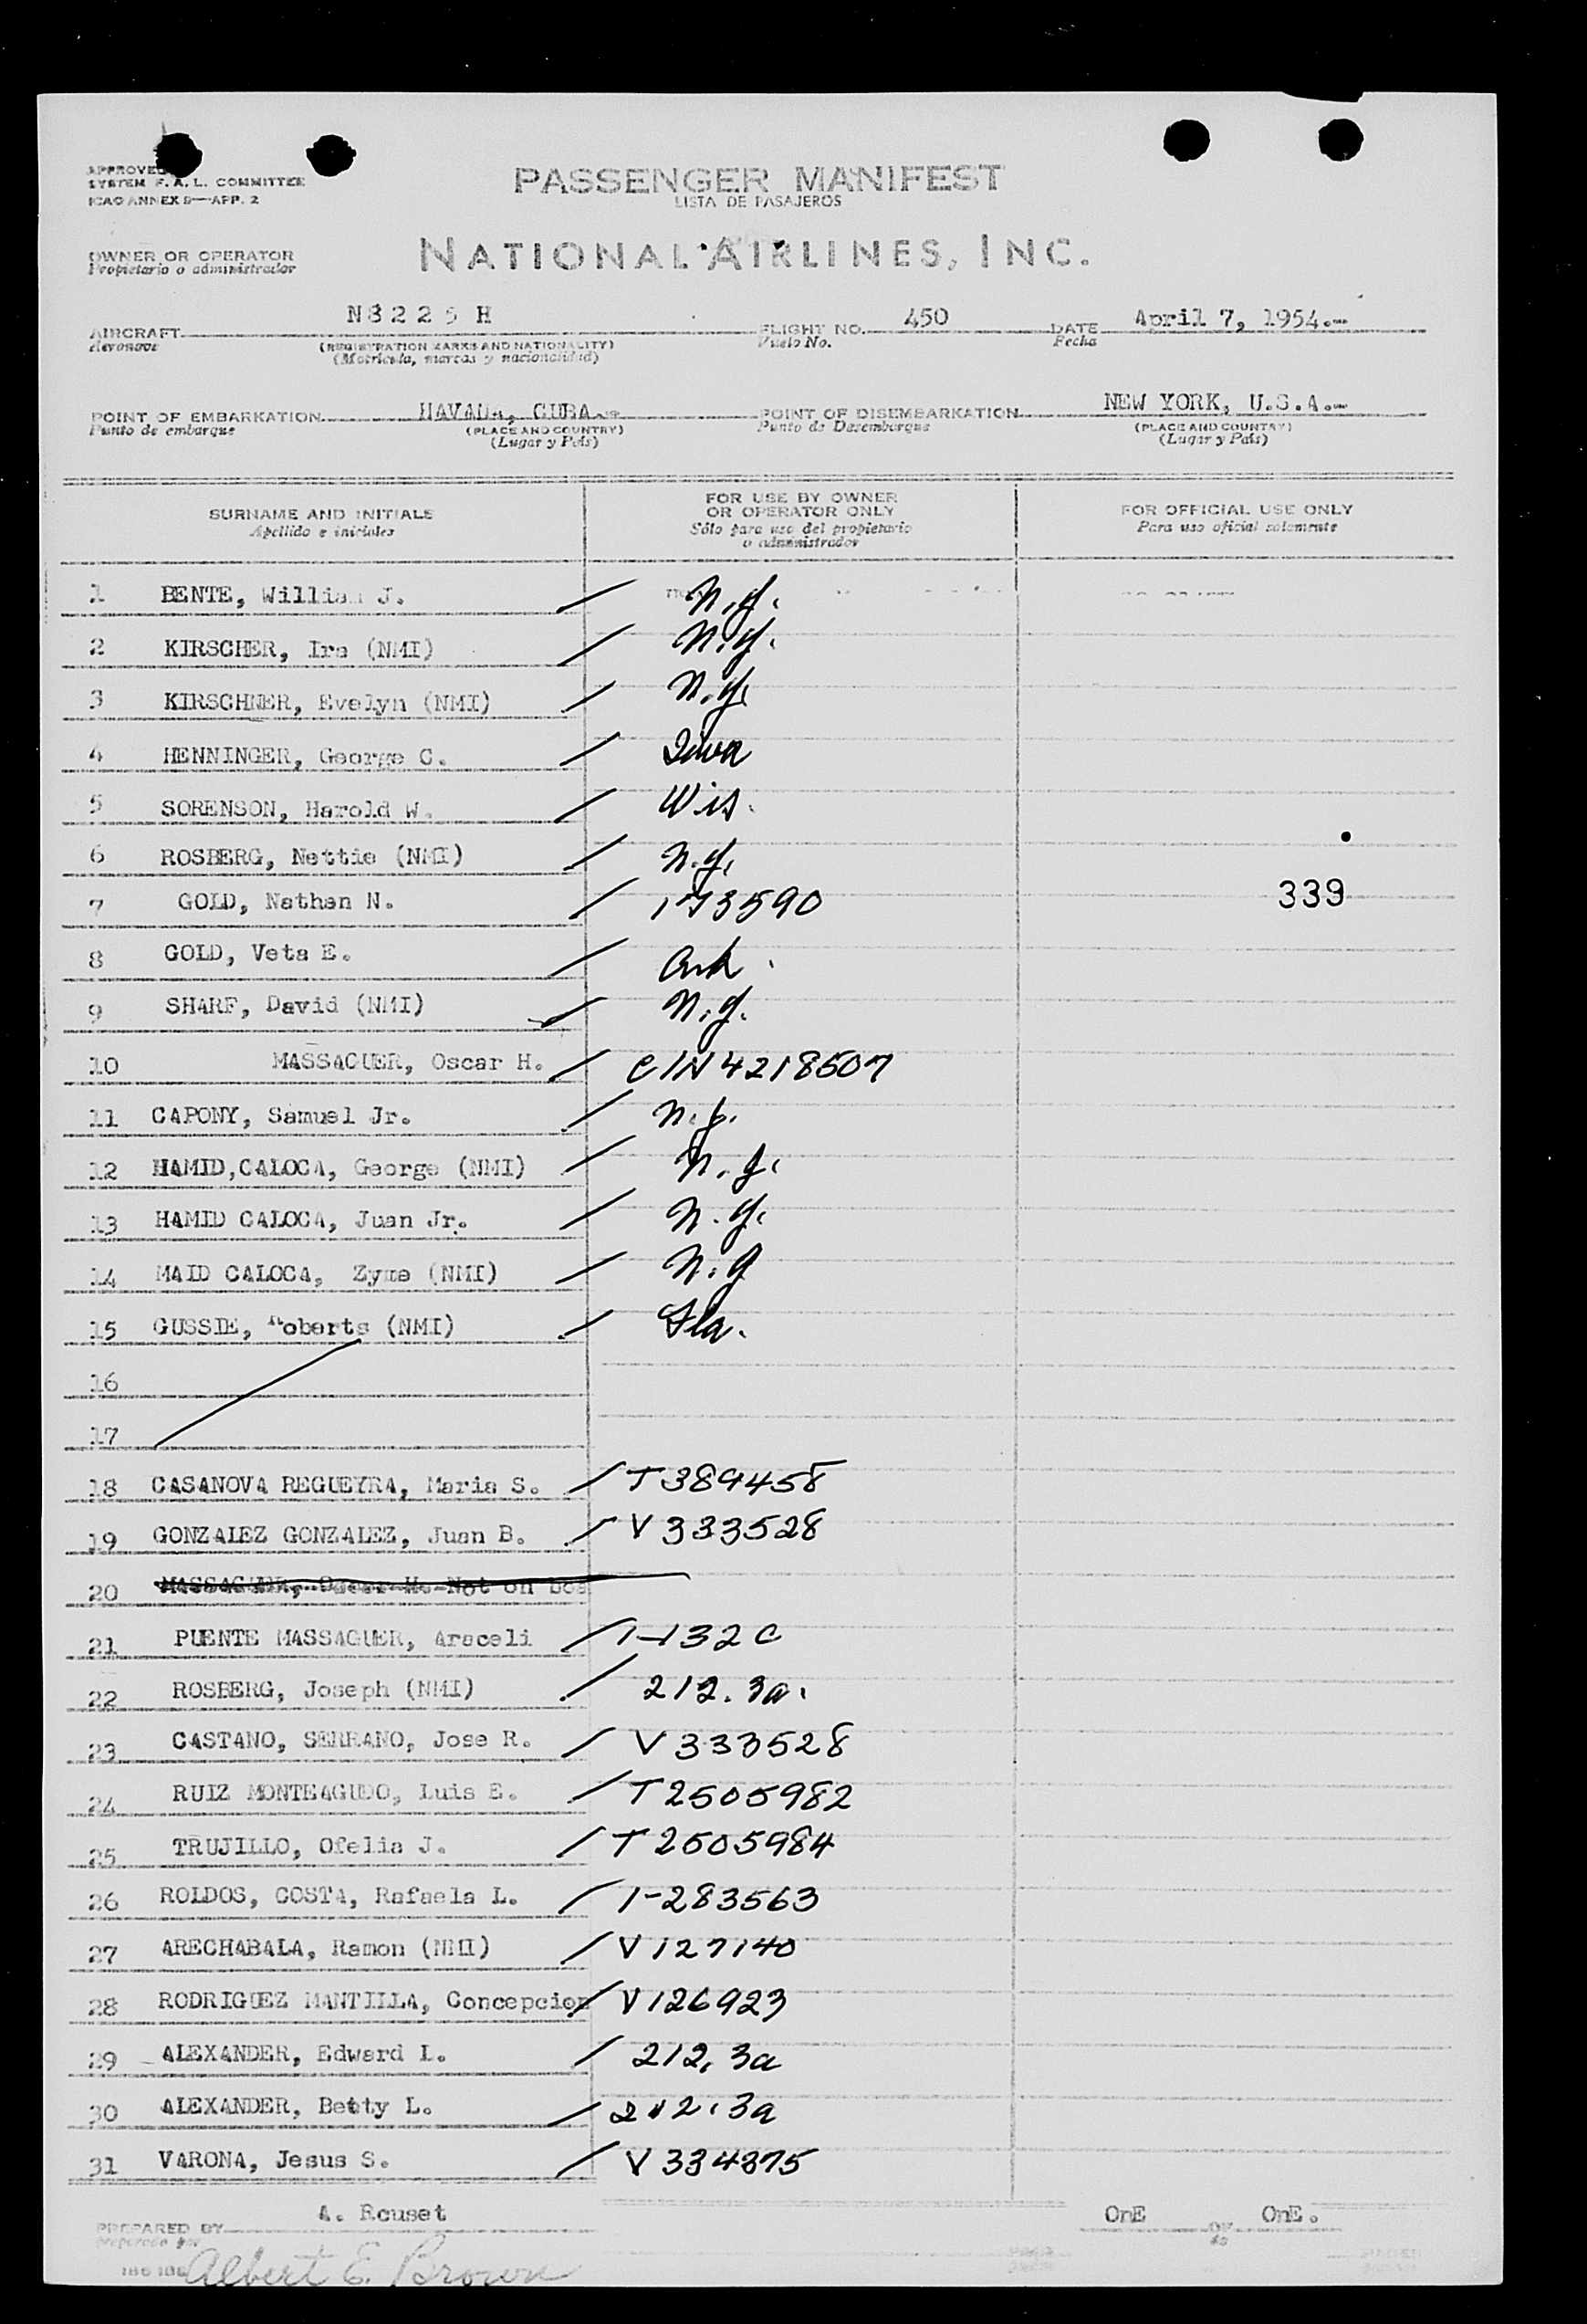 APPROVED
SYSTEM F. A. L. COMMITTEE
ICAO ANNEX 9—APP. 2
PASSENGER MANIFEST
LISTA DE PASAJEROS
OWNER OR OPERATOR
Propietario o administrador
NATIONAL AIRLINES, INC.
AIRCRAFT N8225H FLIGHT NO. 450 DATE April 7, 1954.-
Aeronave (REGISTRATION MARKS AND NATIONALITY) Vuelo No. Fecha
(Matricula, marcas y nacionalidad)
POINT OF EMBARKATION HAVANA, CUBA.- POINT OF DISEMBARKATION NEW YORK, U.S.A.-
Punto de embarque (PLACE AND COUNTRY) Punto de Desembarque (PLACE AND COUNTRY)
(Lugar y País) (Lugar y País)
SURNAME AND INITIALS FOR USE BY OWNER OR OPERATOR ONLY FOR OFFICIAL USE ONLY
Apellido e iniciales Sólo para uso del propietario o administrador Para uso oficial solamente
1 BENTE, William J. N.Y.
2 KIRSCHER, Ira (NMI) N.Y.
3 KIRSCHNER, Evelyn (NMI) N.Y.
4 HENNINGER, George C. Iowa
5 SORENSON, Harold W. Wis.
6 ROSBERG, Nettie (NMI) N.Y.
7 GOLD, Nathan N. 173590 339
8 GOLD, Veta E. Ark.
9 SHARF, David (NMI) N.Y.
10 MASSAGUER, Oscar H. CIN4218507
11 CAPONY, Samuel Jr.
12 HAMID,CALOCA, George (NMI)
13 HAMID CALOCA, Juan Jr. N.Y.
14 MAID CALOCA, Zyme (NMI)
15 GUSSIE, Roberts (NMI) Fla.
16
17
18 CASANOVA REGUEYRA, Maria S. T389458
19 GONZALEZ GONZALEZ, Juan B. V333528
20 MASSAGUER, Oscar H. Not on boa
21 PUENTE MASSAGUER, Araceli 1-132C
22 ROSBERG, Joseph (NMI) 212.3a.
23 CASTANO, SERRANO, Jose R. V333528
24 RUIZ MONTEAGUDO, Luis E. T2505982
25 TRUJILLO, Ofelia J. T2505984
26 ROLDOS, COSTA, Rafaela L. 1-283563
27 ARECHABALA, Ramon (NMI) V127140
28 RODRIGUEZ MANTILLA, Concepcion V126923
29 ALEXANDER, Edward L. 212.3a
30 ALEXANDER, Betty L. 212.3a
31 VARONA, Jesus S. V334375
PREPARED BY A. Rouset OnE OF OnE.
Preparado por
Albert E. Brown